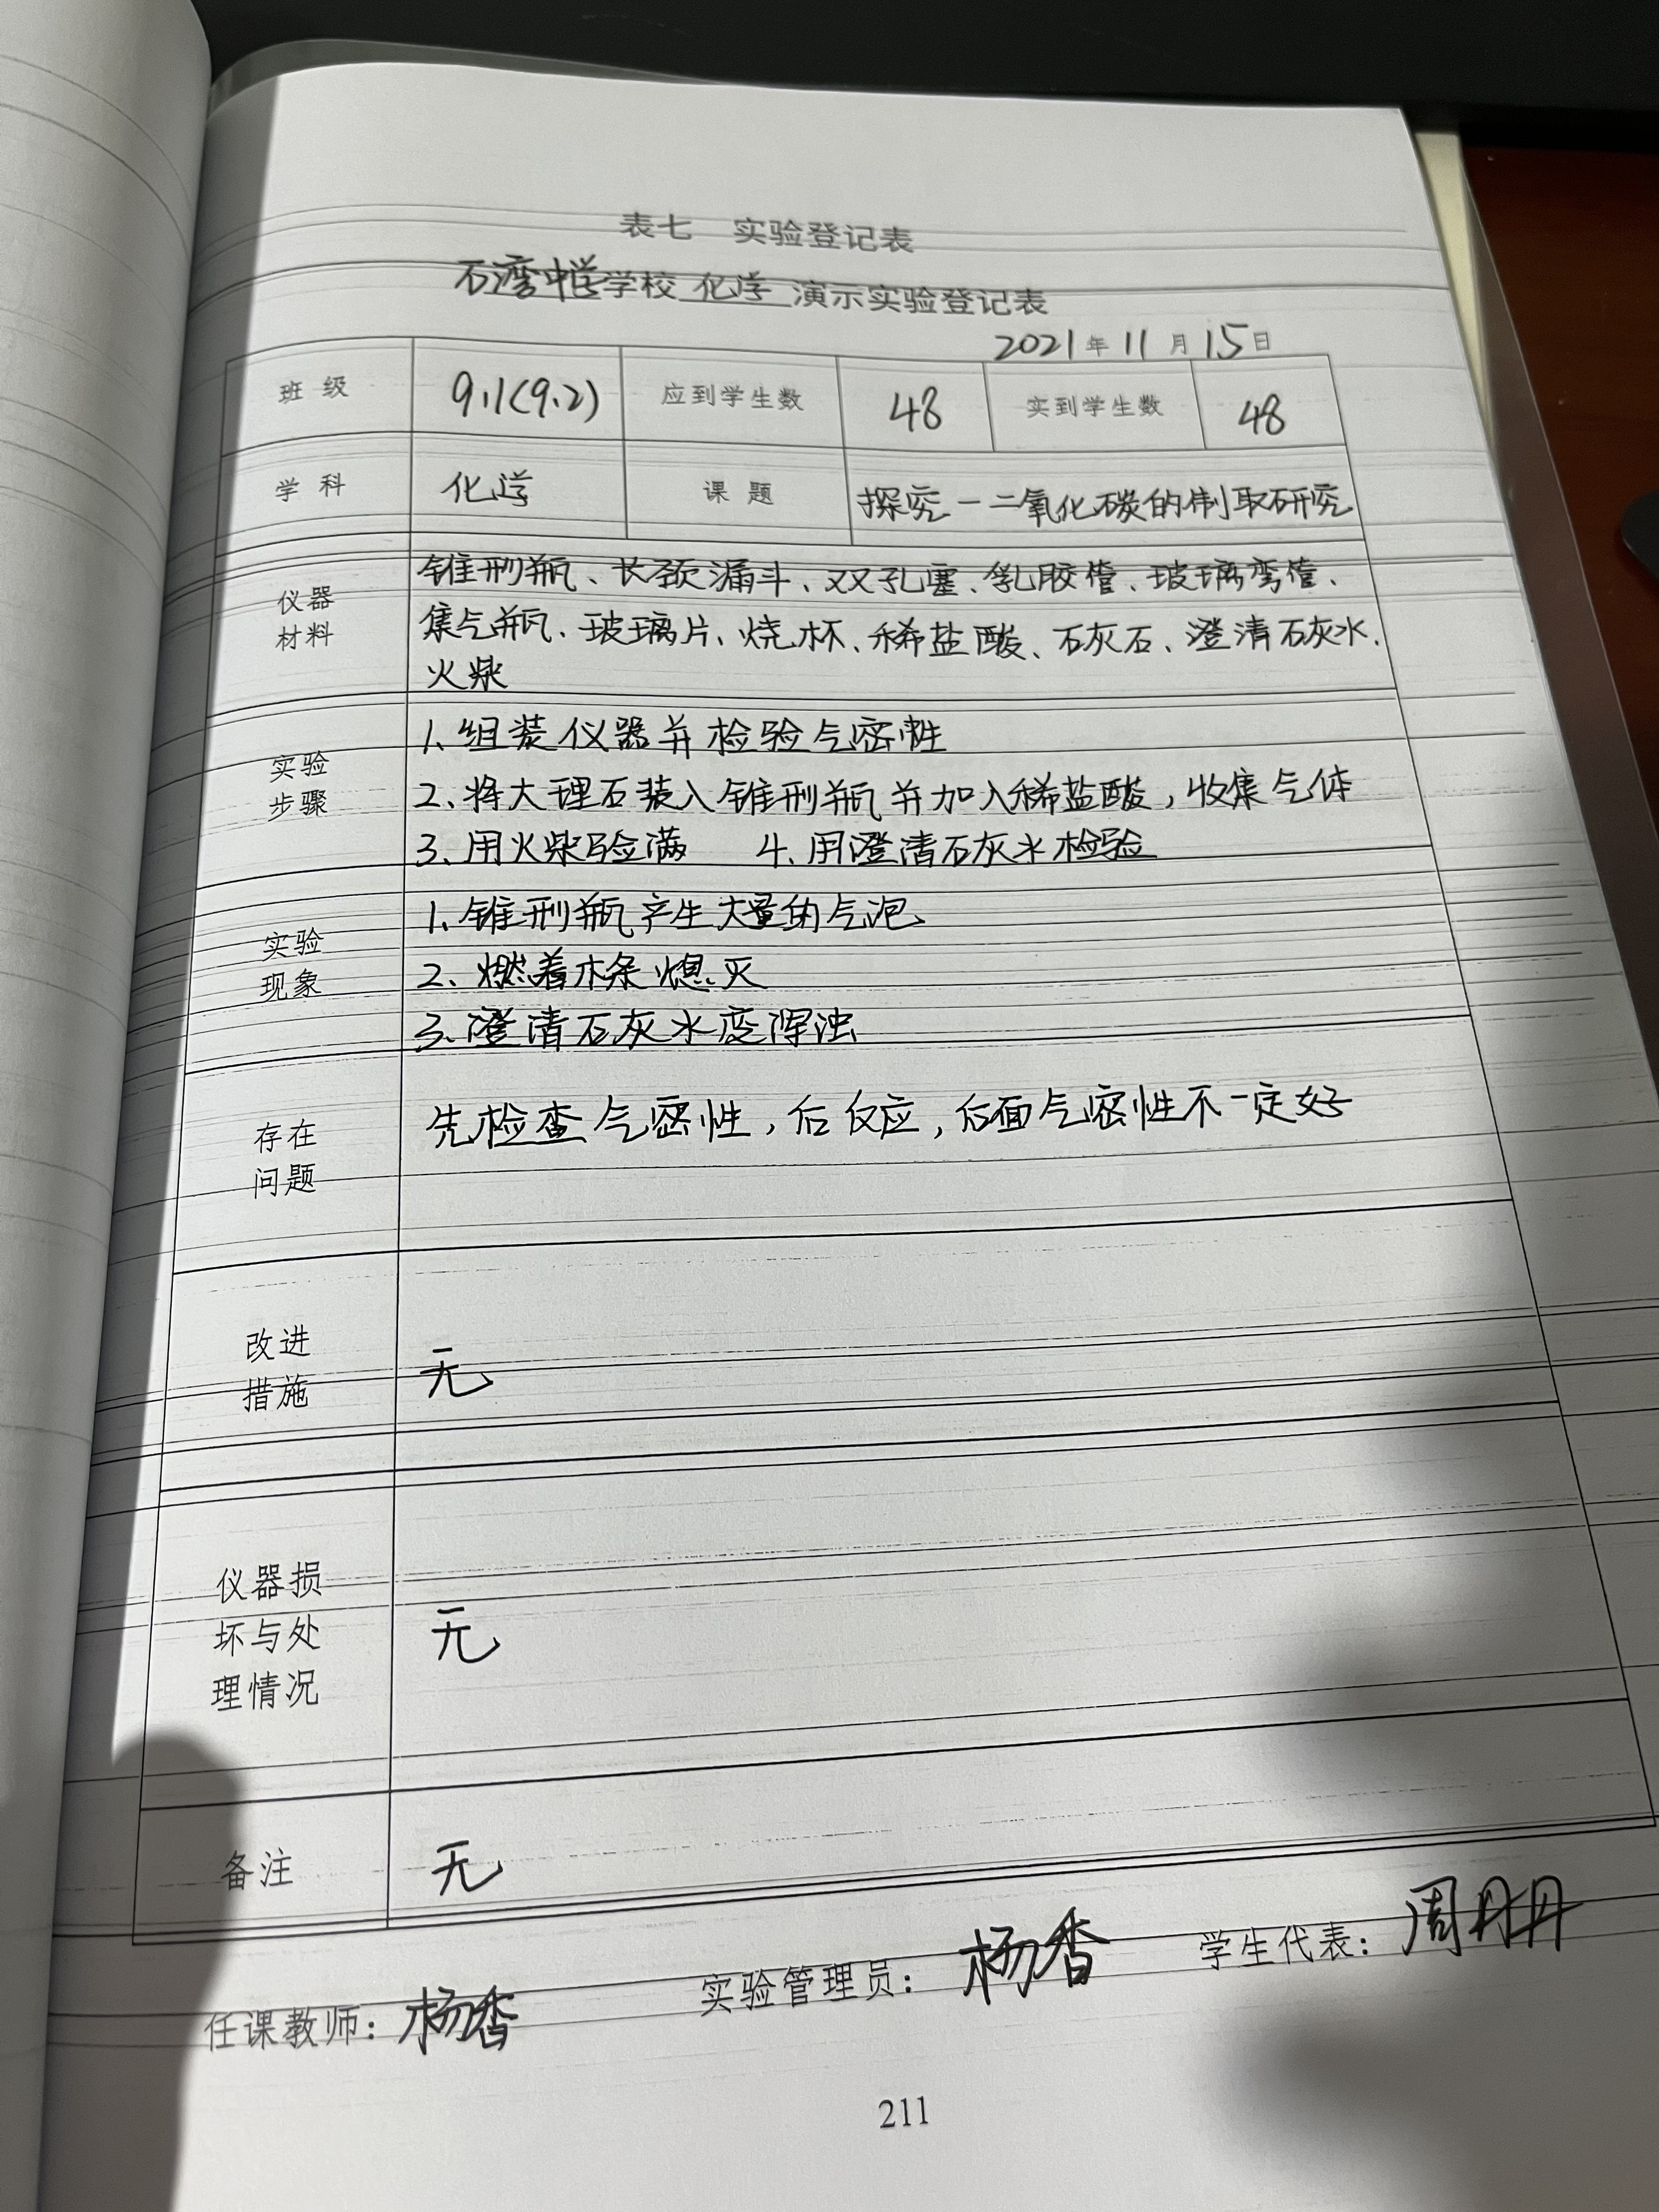 表七 实验登记表
石湾中学学校 化学 演示实验登记表
2021年11月15日
班级 9.1(9.2) 应到学生数 48 实到学生数 48
学科 化学 课题 探究一二氧化碳的制取研究
仪器材料
锥型瓶、长颈漏斗、双孔塞、乳胶管、玻璃弯管、
集气瓶、玻璃片、烧杯、稀盐酸、石灰石、澄清石灰水、
火柴
实验步骤
1、组装仪器并检验气密性
2、将大理石装入锥型瓶并加入稀盐酸，收集气体
3、用火柴验满 4、用澄清石灰水检验
实验现象
1、锥型瓶产生大量的气泡、
2、燃着木条熄灭
3、澄清石灰水变浑浊
存在问题
先检查气密性，后反应，后面气密性不一定好
改进措施
无
仪器损坏与处理情况
无
备注
无
任课教师：杨香 实验管理员：杨香 学生代表：周丹丹
211